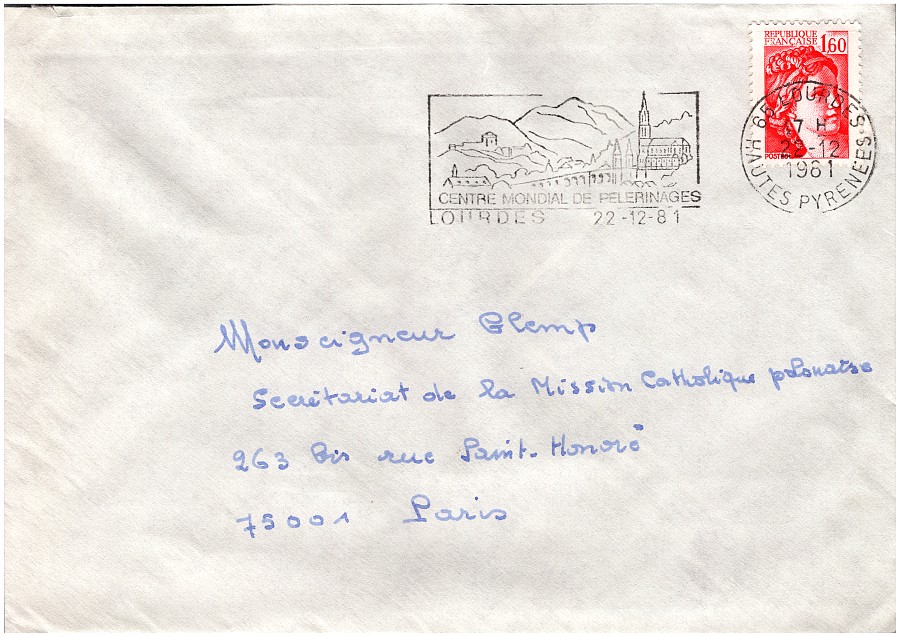 REPUBLIQUE
FRANÇAISE 1,60
POSTES
65 LOURDES
17 H
22-12
1981
HAUTES PYRENEES
CENTRE MONDIAL DE PELERINAGES
LOURDES 22-12-81
Monseigneur Glemp
Secrétariat de la Mission Catholique polonaise
263 bis rue Saint-Honoré
75001 Paris